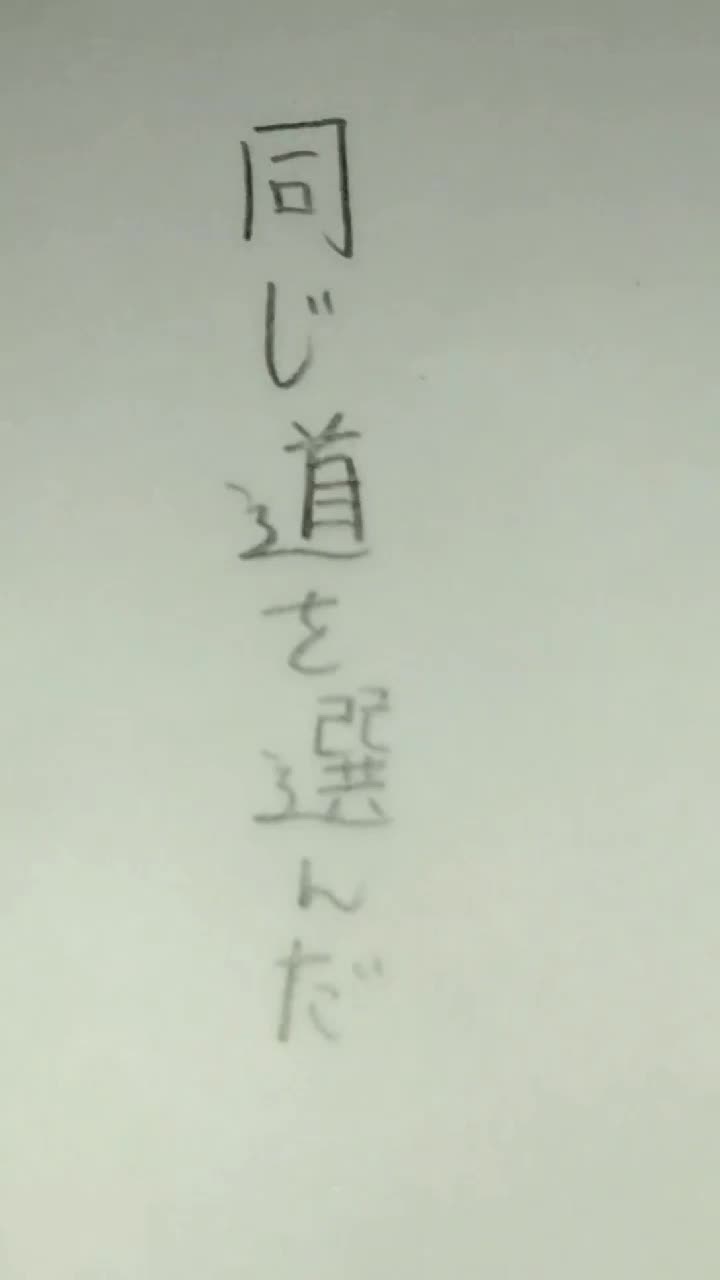 同じ道を選んだ